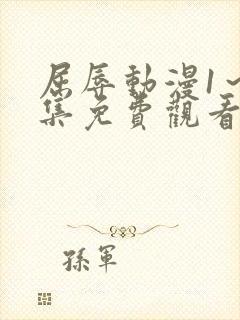 屈辱動漫1~
集免費觀看
孫軍